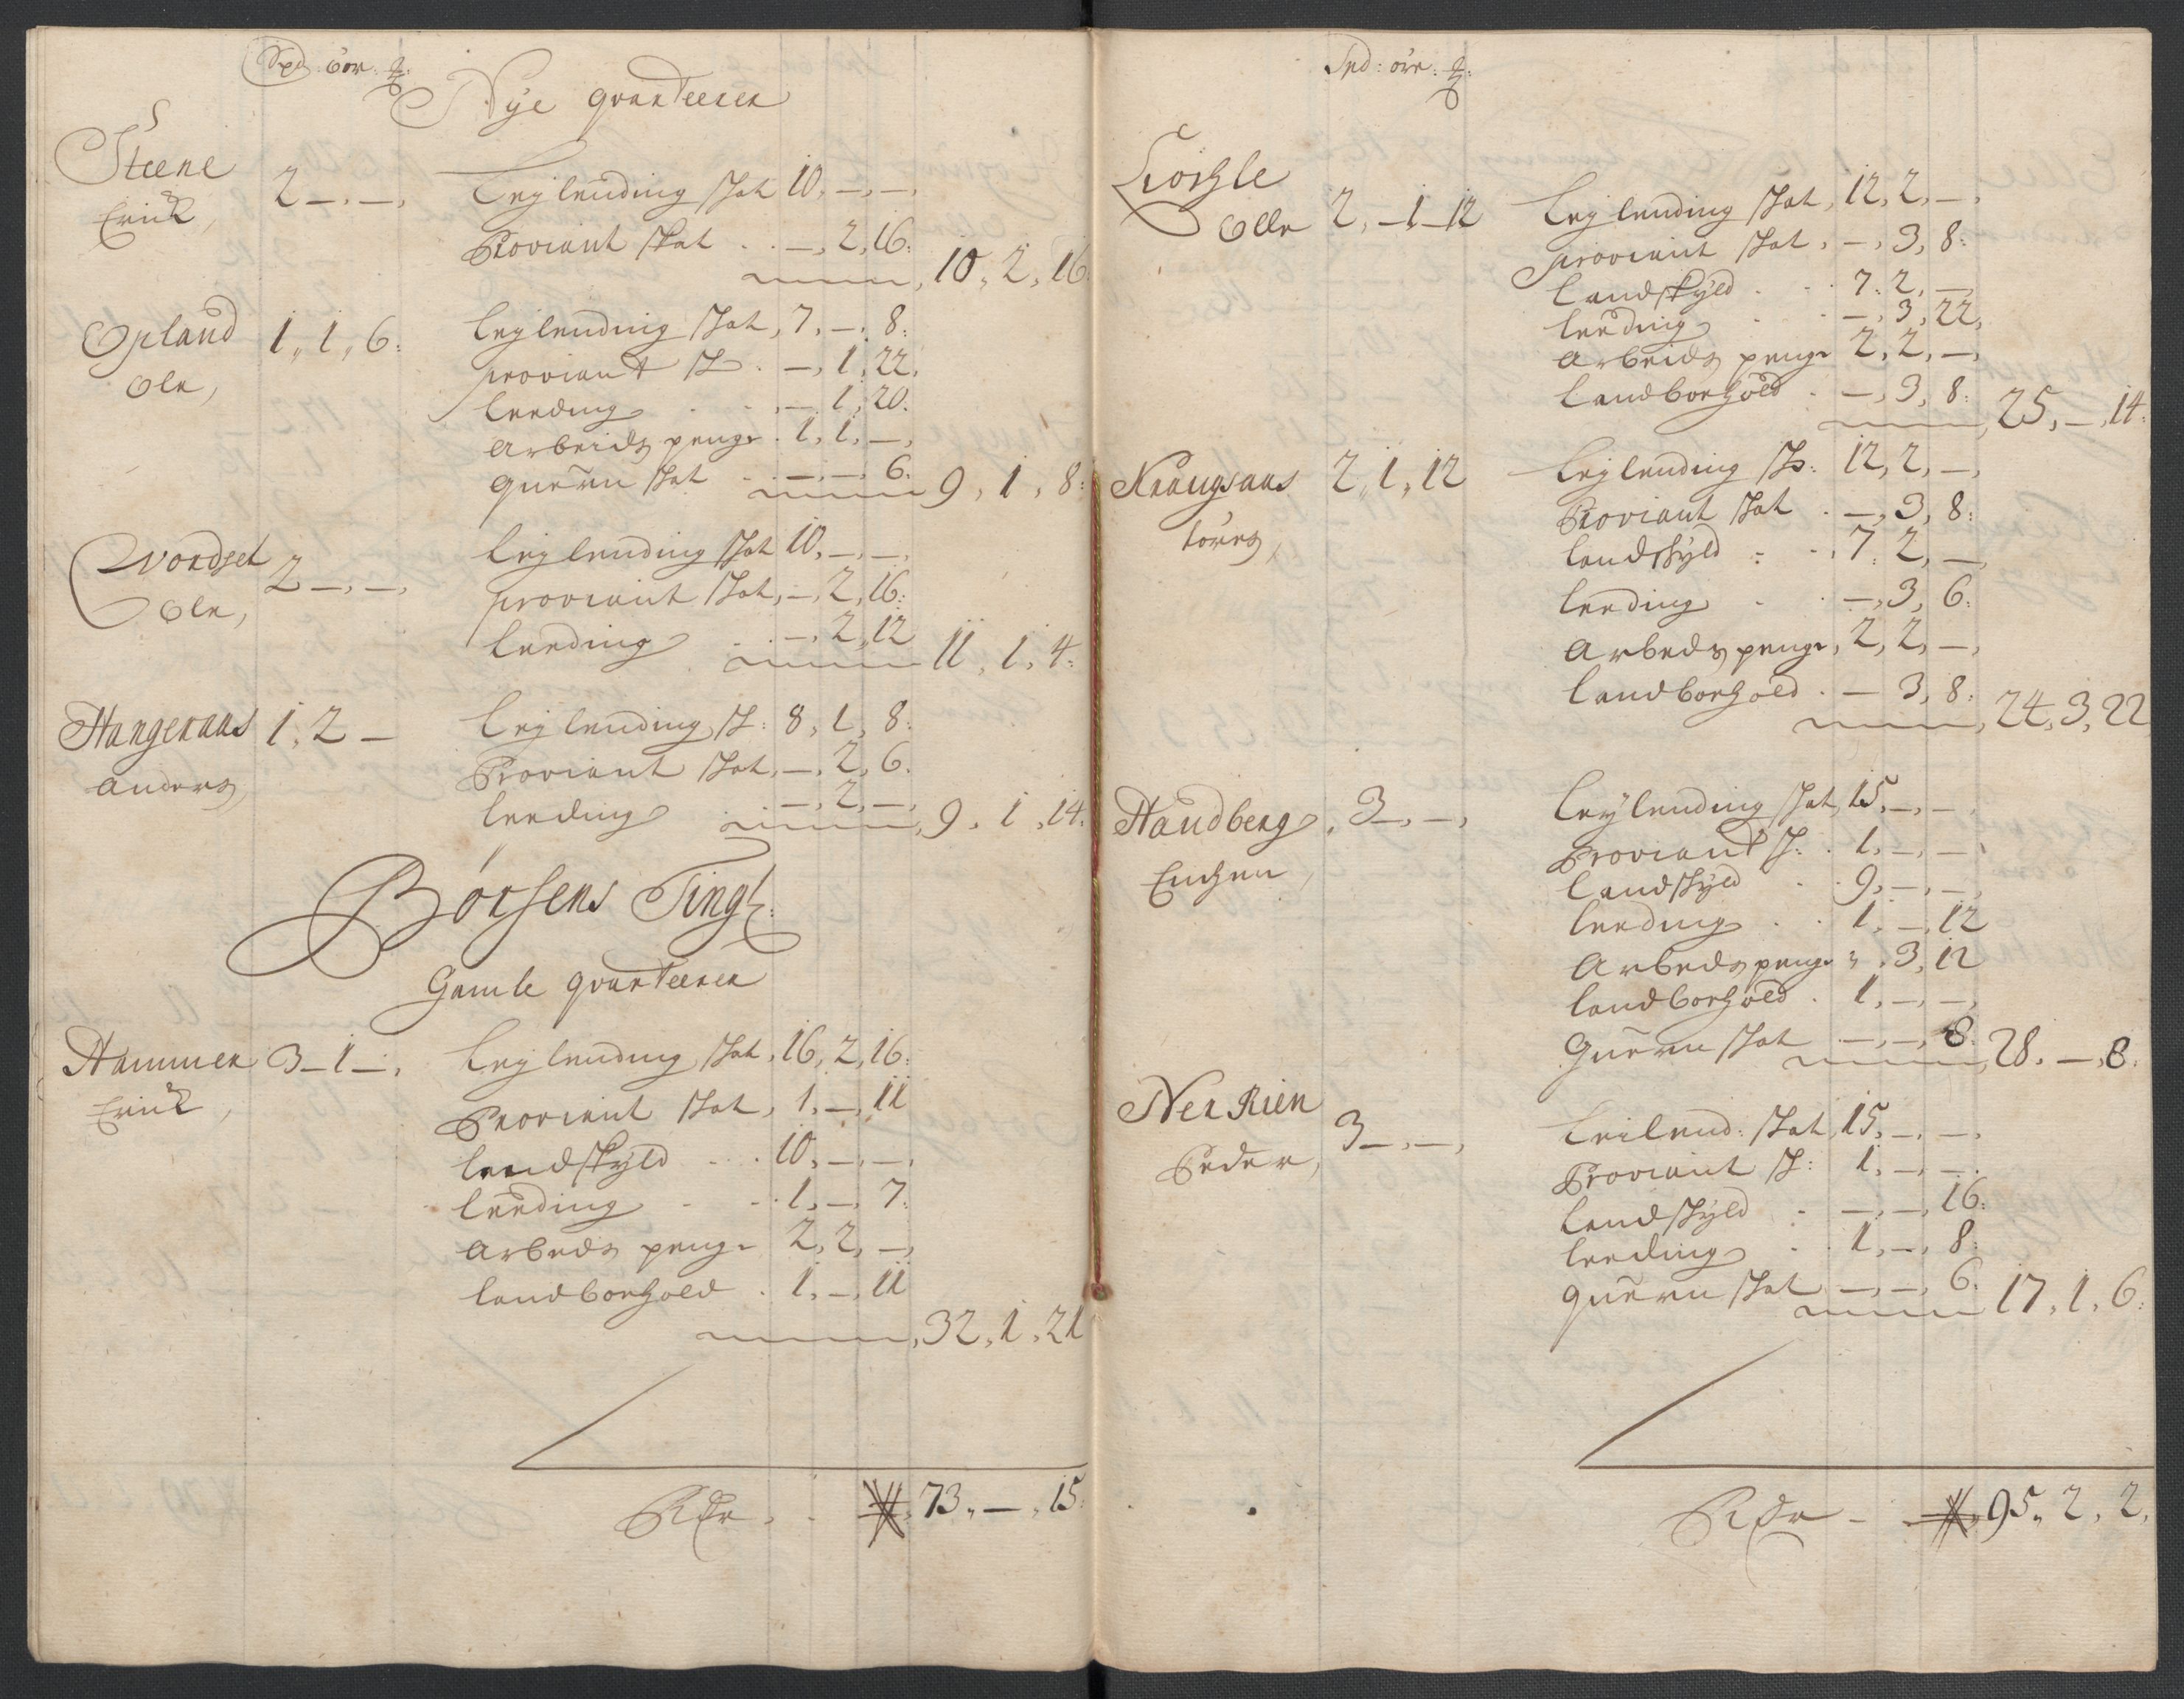 Spd: ör: ₰:
Nye qvarteerer
Steene 2 – . – , Leylending skat 10, – , – ,
Erick, Proviant skat . . – , 2, 16:
10, 2, 16
Opland 1, 1, 6: Leylending skat, 7, – , 8:
Ole, proviant sk . – , 1, 22,
Leeding . . – , 1, 20.
Arbeids penge . 1, 1, – ,
Quern skat . – , – , 6. 9, 1, 8:
Wordset 2 – , – , Leylending skat 10, – , – ,
Ole, proviant skat, – , 2, 16:
Leeding . . – , 2, 12
11, 1, 4:
Hangeraas 1, 2 – Leylending sk: 8, 1, 8:
Anders, Proviant skat, – , 2, 6.
Leeding . . – , 2, – ,
9, 1, 14.
Börsens Tingl:
Gamle qvarteerer
Hammer 3 – 1 – , Leylending skat, 16, 2, 16:
Erick, Proviant skat, 1, – , 11
landskyld . . 10, – , – ,
Leeding - . 1, – , 7.
Arbeds penge 2, 2, – ,
landborhold . 1, – , 11
32, 1, 21
Rdr . . 73, – , 15:
Spd: ör: ₰:
Olle 2, – 1 – 12 Leylending skat, 12, 2, – ,
proviant skat, – , 3, 8:
Landskyld . . 7. 2, – ,
leeding . . – , 3, 22,
Arbeids penge 2, 2, – ,
Landborhold . – , 3, 8:
25, – , 14:
Krangsaas 2, 1, 12 Leylending sk: 12, 2, – ,
Töres, Proviant skat . – , 3, 8:
landskyld : . 7. 2, – ,
leeding . . – , 3, 6:
Arbeds penge, 2, 2, – ,
landborhold . – 3, 8:
24, 3, 22
Handberg . 3 – , – , Leylending skat, 15, – , –
Enchen, Proviant sk: . 1, – , –
Landskyld . . 9, – , – ,
leeding . . 1, – , 12
Arbeds penge . 3, 12
landborhold . 1, – , – ,
Quern skat . – , – , 8.
28, – , 8.
Ner Rien 3 – , – , Leilend: skat, 15, – , – ,
Peder, Proviant sk: 1, – , – .
Landskyld : – , – , 16:
leeding . . 1, – , 8.
quern skat – , – , 6.
17, 1, 6:
Rdr – . 95, 2, 2,